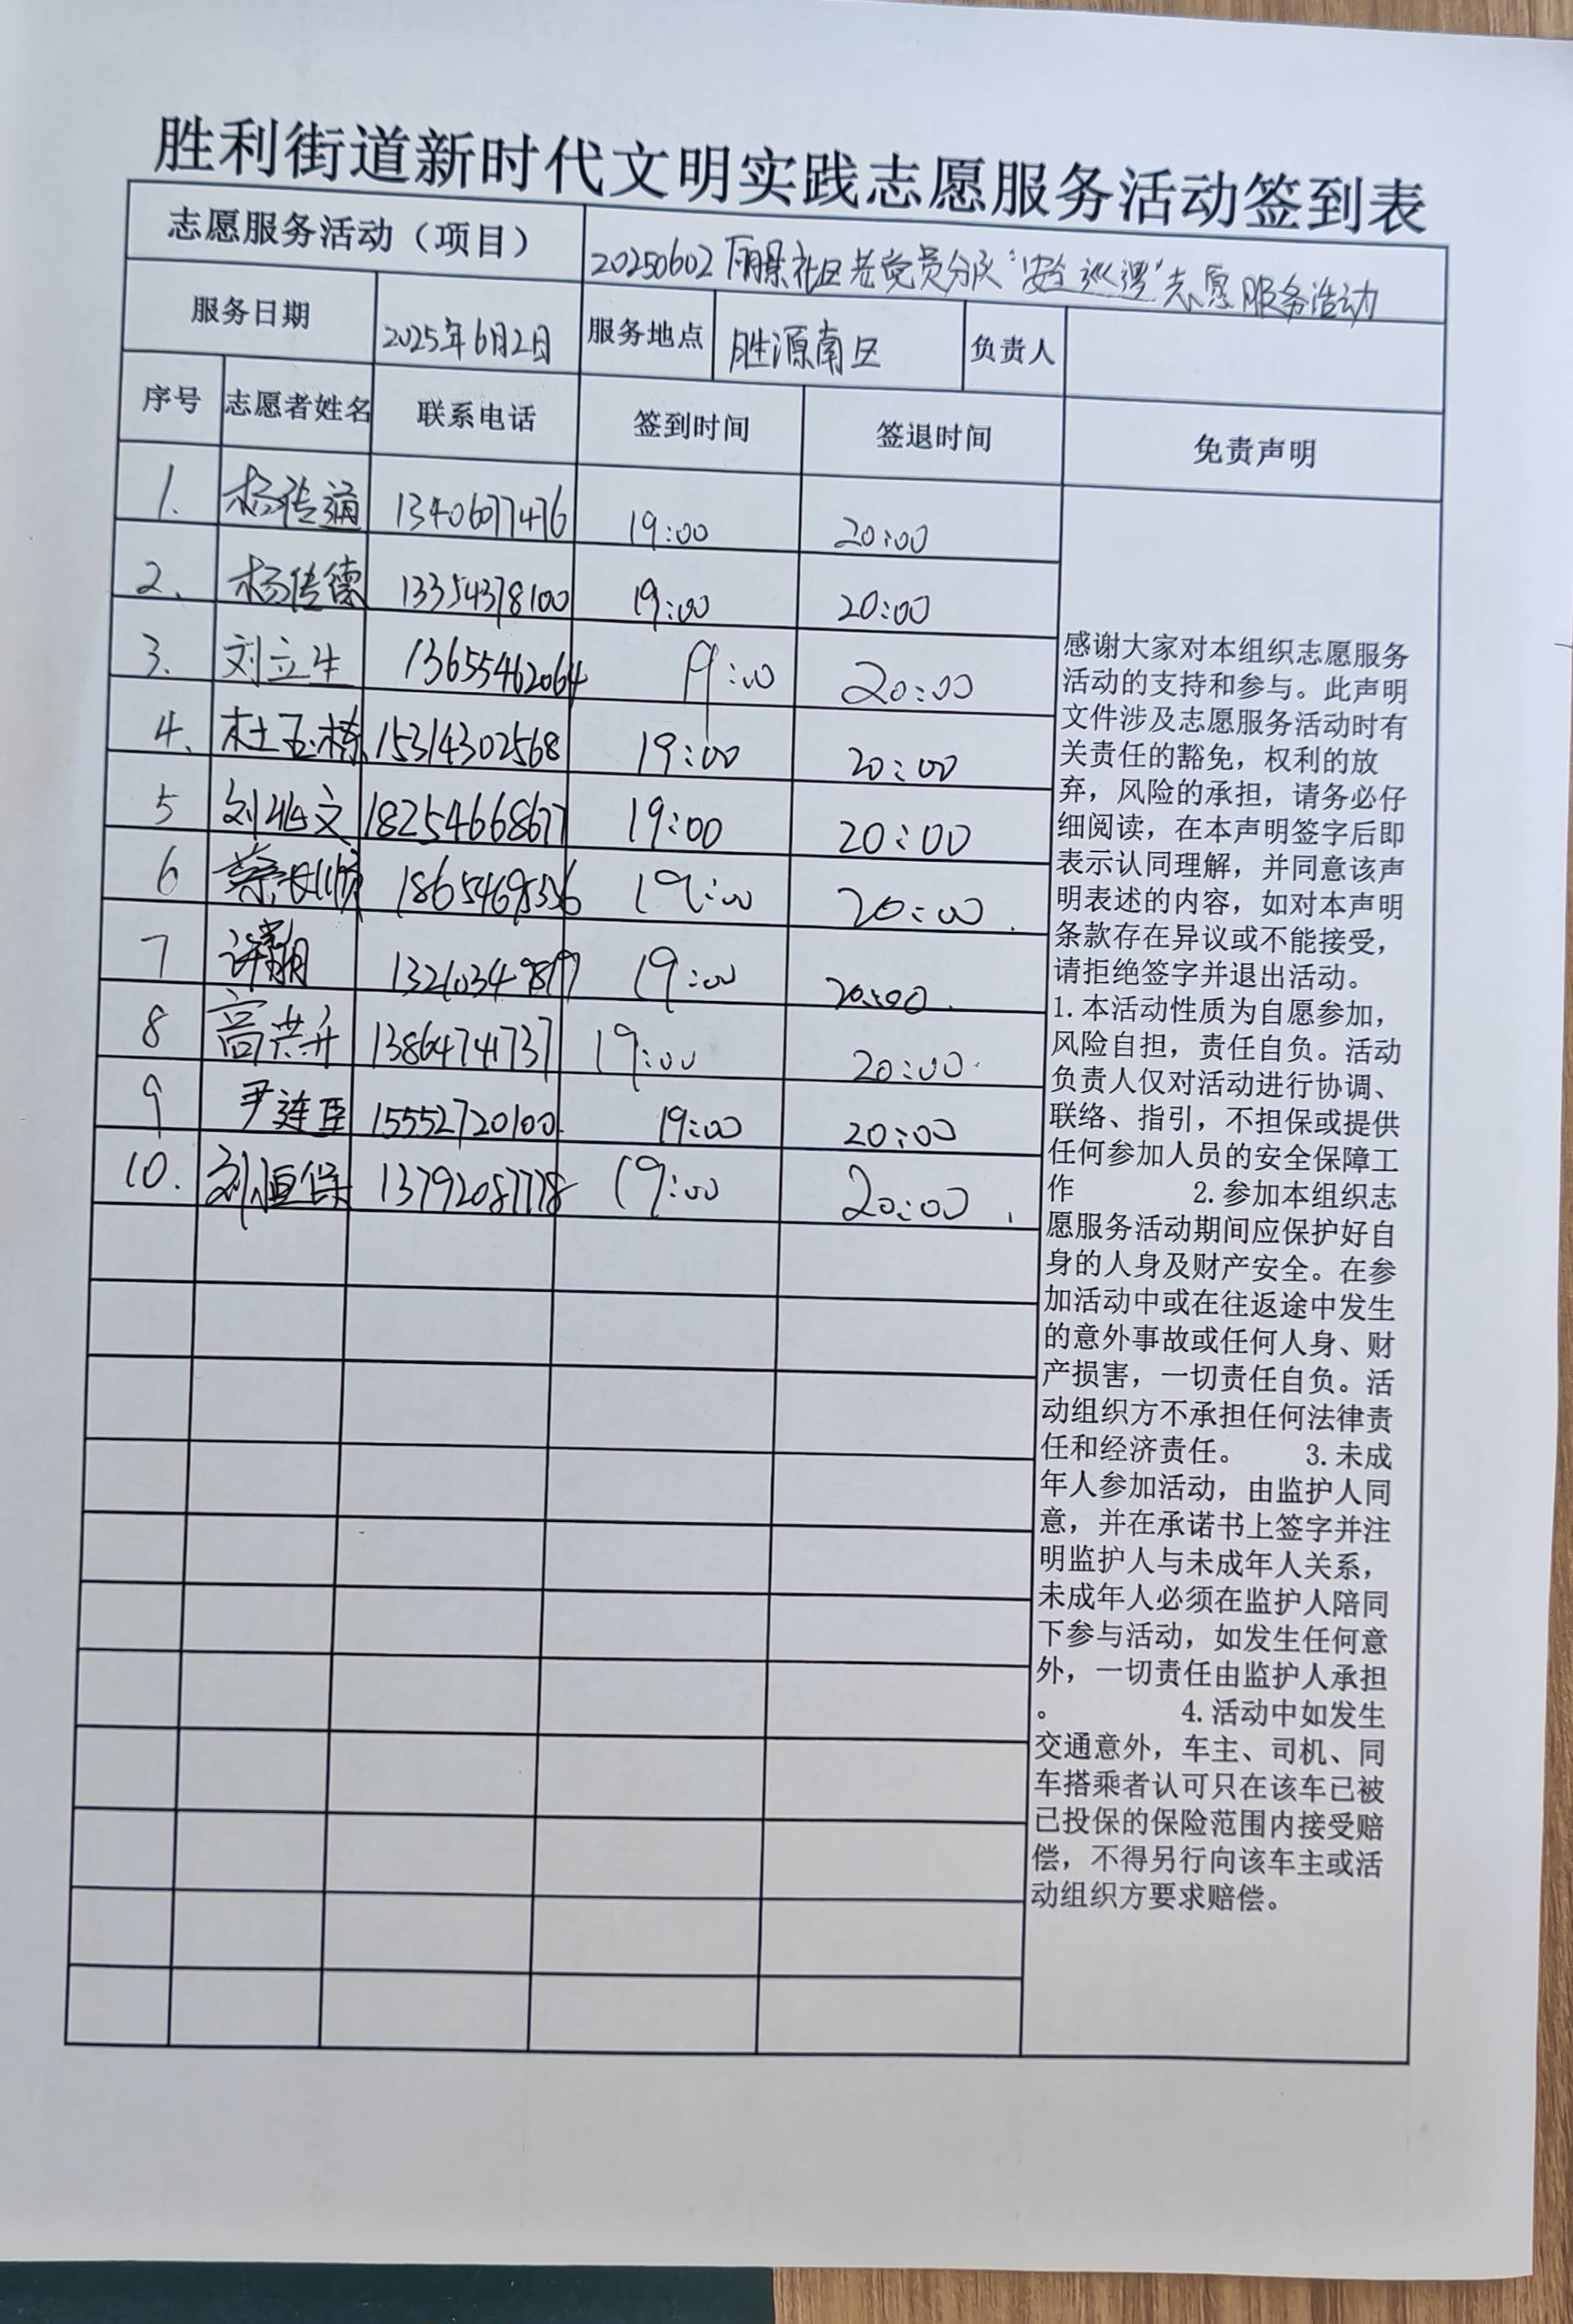 胜利街道新时代文明实践志愿服务活动签到表
志愿服务活动（项目） 20250602 社区老党员分队“安全巡逻”志愿服务活动
服务日期 2025年6月2日 服务地点 胜源南区 负责人
序号 志愿者姓名 联系电话 签到时间 签退时间 免责声明
1. 杨传通 13406077476 19:00 20:00
2、 杨传德 13354378100 19:00 20:00
3. 刘立生 13655462064 19:00 20:00
4、 杜玉栋 15314302568 19:00 20:00
5 18254668677 19:00 20:00
6 19:00 20:00
7 19:00 20:00
8 高荣升 13864741737 19:00 20:00
9 尹连臣 15552720100 19:00 20:00
10. 刘恒保 13792087778 19:00 20:00
感谢大家对本组织志愿服务
活动的支持和参与。此声明
文件涉及志愿服务活动时有
关责任的豁免，权利的放
弃，风险的承担，请务必仔
细阅读，在本声明签字后即
表示认同理解，并同意该声
明表述的内容，如对本声明
条款存在异议或不能接受，
请拒绝签字并退出活动。
1.本活动性质为自愿参加，
风险自担，责任自负。活动
负责人仅对活动进行协调、
联络、指引，不担保或提供
任何参加人员的安全保障工
作 2.参加本组织志
愿服务活动期间应保护好自
身的人身及财产安全。在参
加活动中或在往返途中发生
的意外事故或任何人身、财
产损害，一切责任自负。活
动组织方不承担任何法律责
任和经济责任。 3.未成
年人参加活动，由监护人同
意，并在承诺书上签字并注
明监护人与未成年人关系，
未成年人必须在监护人陪同
下参与活动，如发生任何意
外，一切责任由监护人承担
。 4.活动中如发生
交通意外，车主、司机、同
车搭乘者认可只在该车已被
已投保的保险范围内接受赔
偿，不得另行向该车主或活
动组织方要求赔偿。